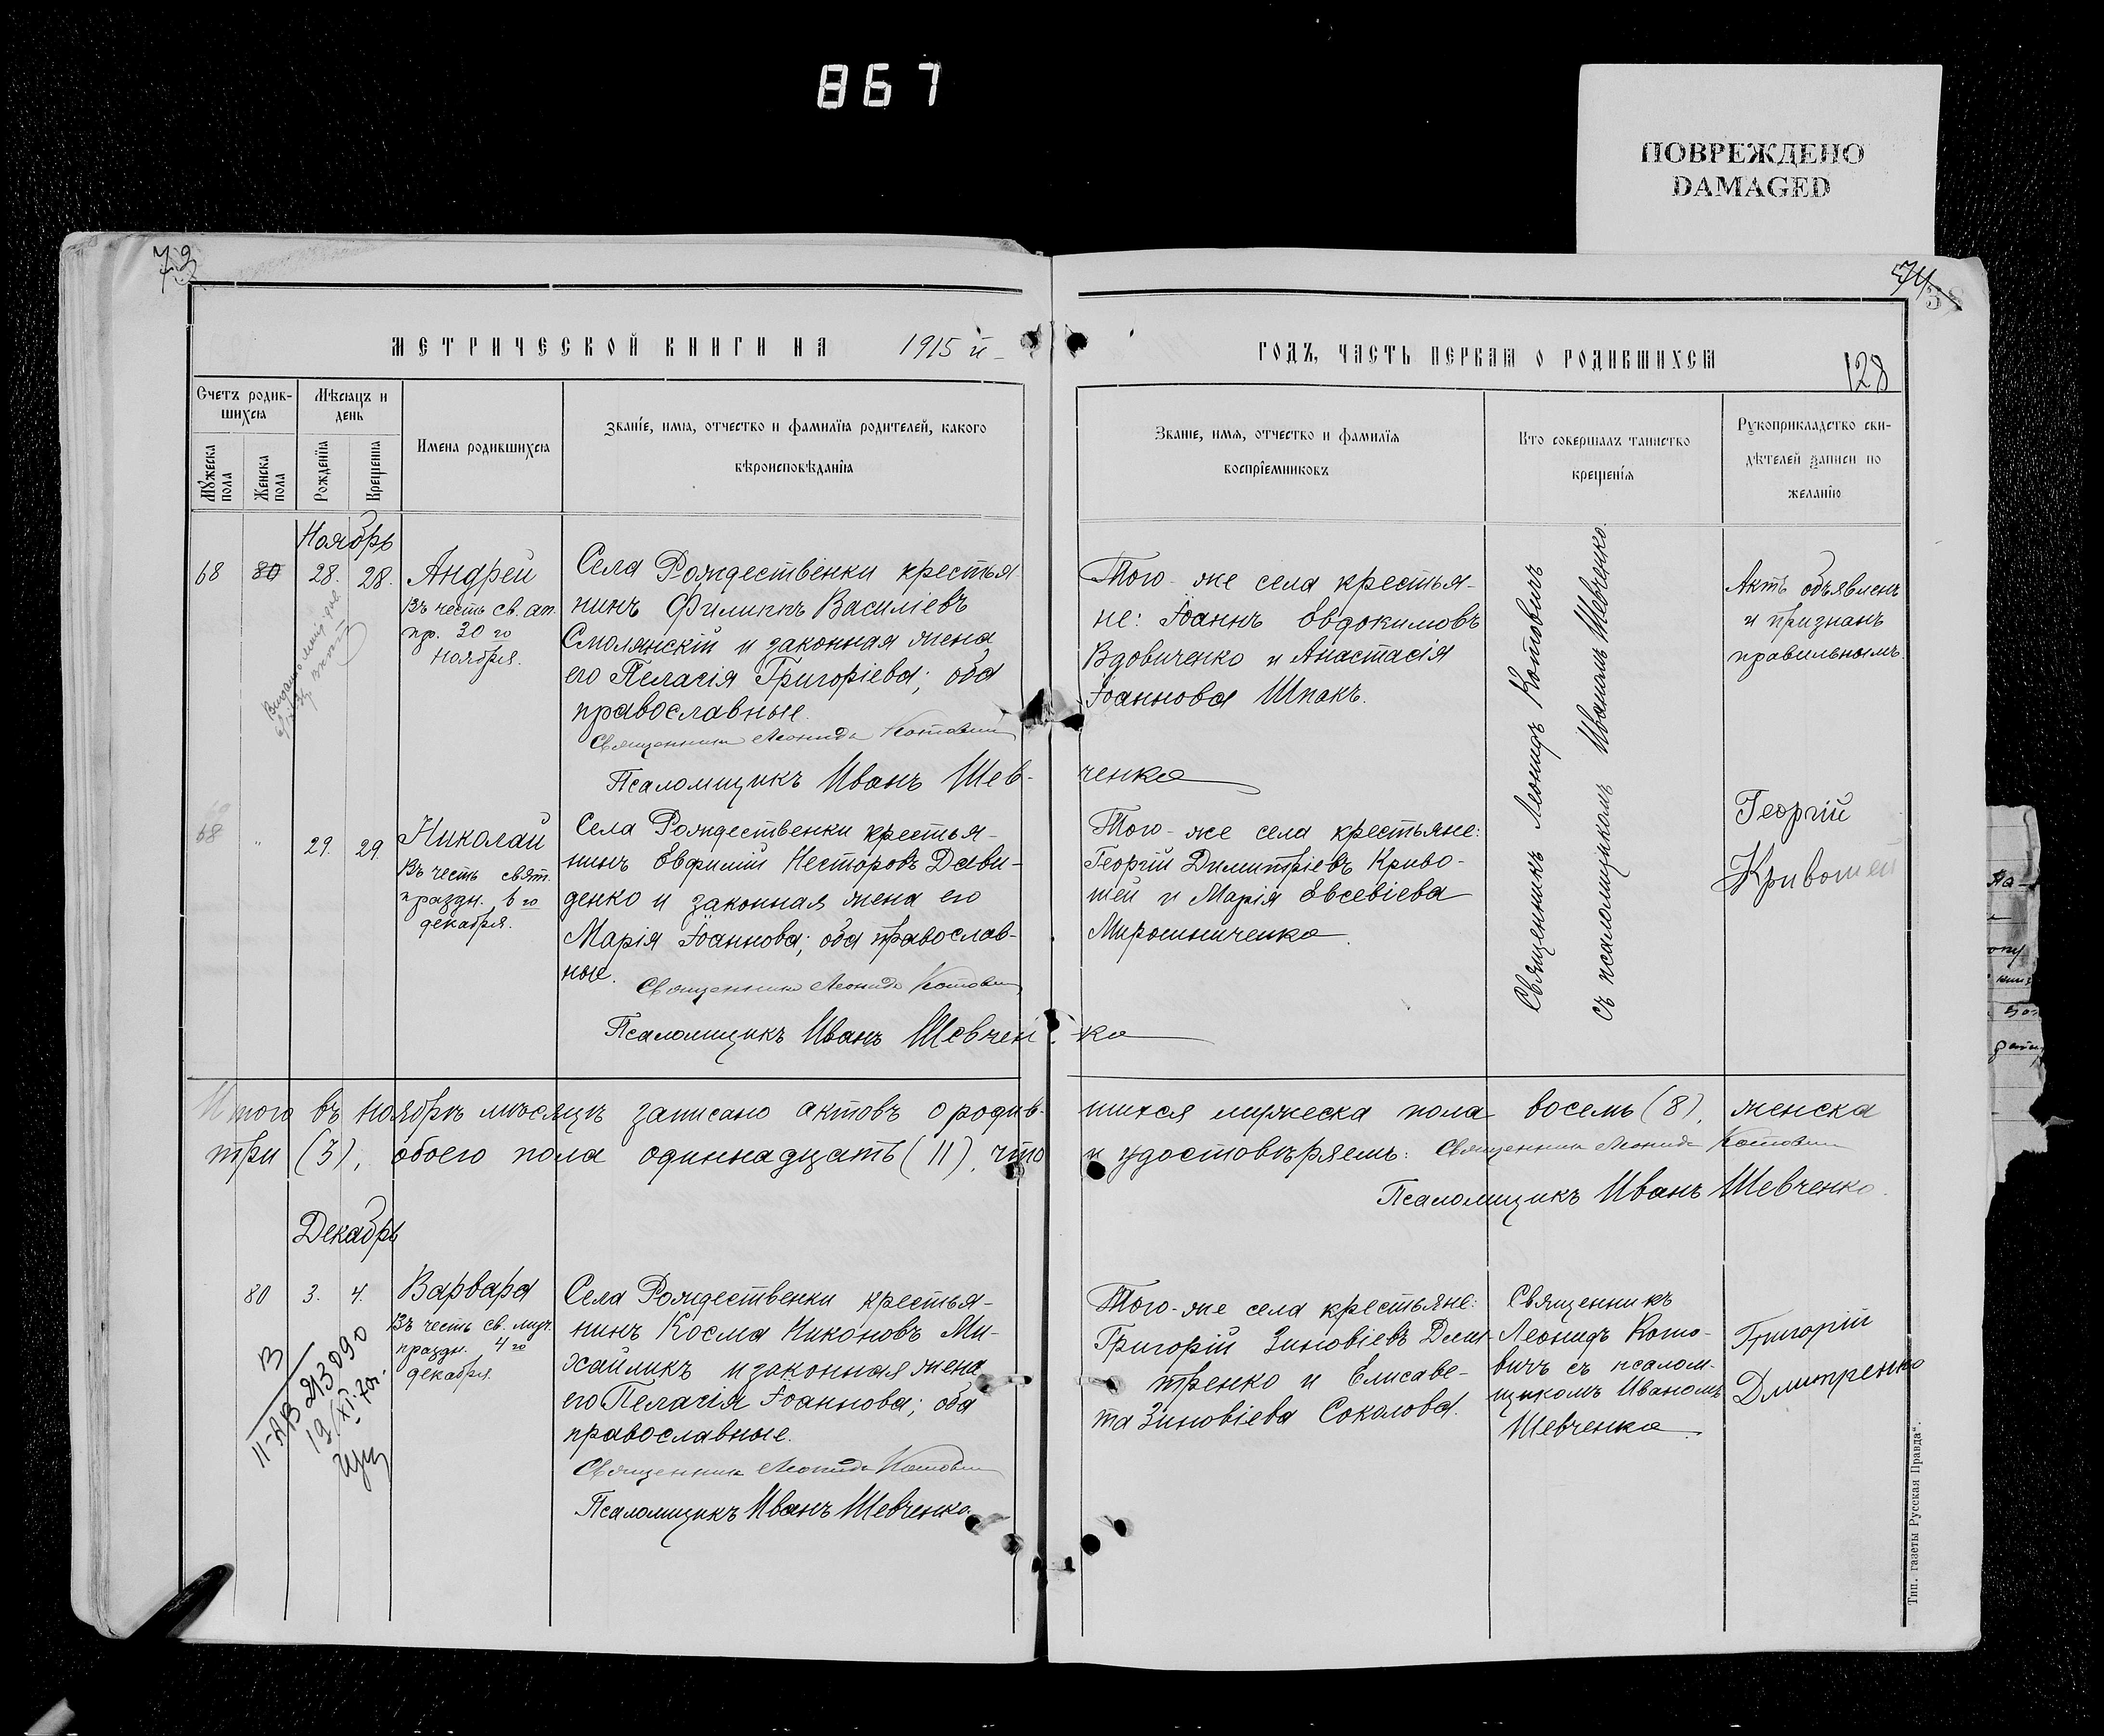 867
ПОВРЕЖДЕНО
DAMAGED
73
74
128
МЕТРИЧЕСКОЙ КНИГИ НА 1915 й
ГОДЪ, ЧАСТЬ ПЕРВАЯ О РОДИВШИХСЯ
Счетъ родив-
шихся
Мужеска
пола
Женска
пола
Мѣсяцъ и
день
Рожденія
Крещенія
Имена родившихся
Званіе, имя, отчество и фамилія родителей, какого
вѣроисповѣданія
Званіе, имя, отчество и фамилія
воспріемниковъ
Кто совершалъ таинство
крещенія
Рукоприкладство сви-
дѣтелей записи по
желанію
Ноябрь
68 80 28. 28.
Андрей
Въ честь св. ап.
пр. 30 го
ноября.
Села Рождественки крестья
нинъ Филиппъ Василіевъ
Смолянскій и законная жена
его Пелагія Григоріева; оба
православные.
Священникъ Леонидъ Котовичъ
Псаломщикъ Иванъ Шев-
ченко
Того-же села крестья-
не: Іоаннъ Евдокимовъ
Вдовиченко и Анастасія
Іоаннова Шпакъ.
Священникъ Леонидъ Котовичъ
съ псаломщикомъ Иваномъ Шевченко.
Актъ объявленъ
и признанъ
правильнымъ.
68 " 29. 29.
Николай
Въ честь свят.
праздн. 6 го
декабря.
Села Рождественки крестья-
нинъ Евфимій Несторовъ Дави-
денко и законная жена его
Марія Іоаннова; оба православ-
ные.
Священникъ Леонидъ Котовичъ
Псаломщикъ Иванъ Шевчен-
ко
Того-же села крестьяне:
Георгій Димитріевъ Криво-
шей и Марія Евсевіева
Мирошниченко.
Георгій
Кривошей
Итого въ ноябрѣ мѣсяцѣ записано актовъ о родив-
шихся мужеска пола восемь (8), женска
три (3), обоего пола одиннадцать (11), что
и удостовѣряемъ: Священникъ Леонидъ Котовичъ
Псаломщикъ Иванъ Шевченко.
Декабрь
80 3. 4.
Варвара
Въ честь св. муч.
праздн. 4 го
декабря.
Села Рождественки крестья-
нинъ Косма Никоновъ Ми-
хайликъ и законная жена
его Пелагія Іоаннова; оба
православные.
Священникъ Леонидъ Котовичъ
Псаломщикъ Иванъ Шевченко.
Того-же села крестьяне:
Григорій Зиновіевъ Дми-
тренко и Елисаве-
та Зиновіева Соколова.
Священникъ
Леонидъ Кото-
вичъ съ псалом-
щикомъ Иваномъ
Шевченко.
Григорій
Дмитренко
II-АВ 213090
19/XI-70г.
Тип. газеты „Русская Правда“.